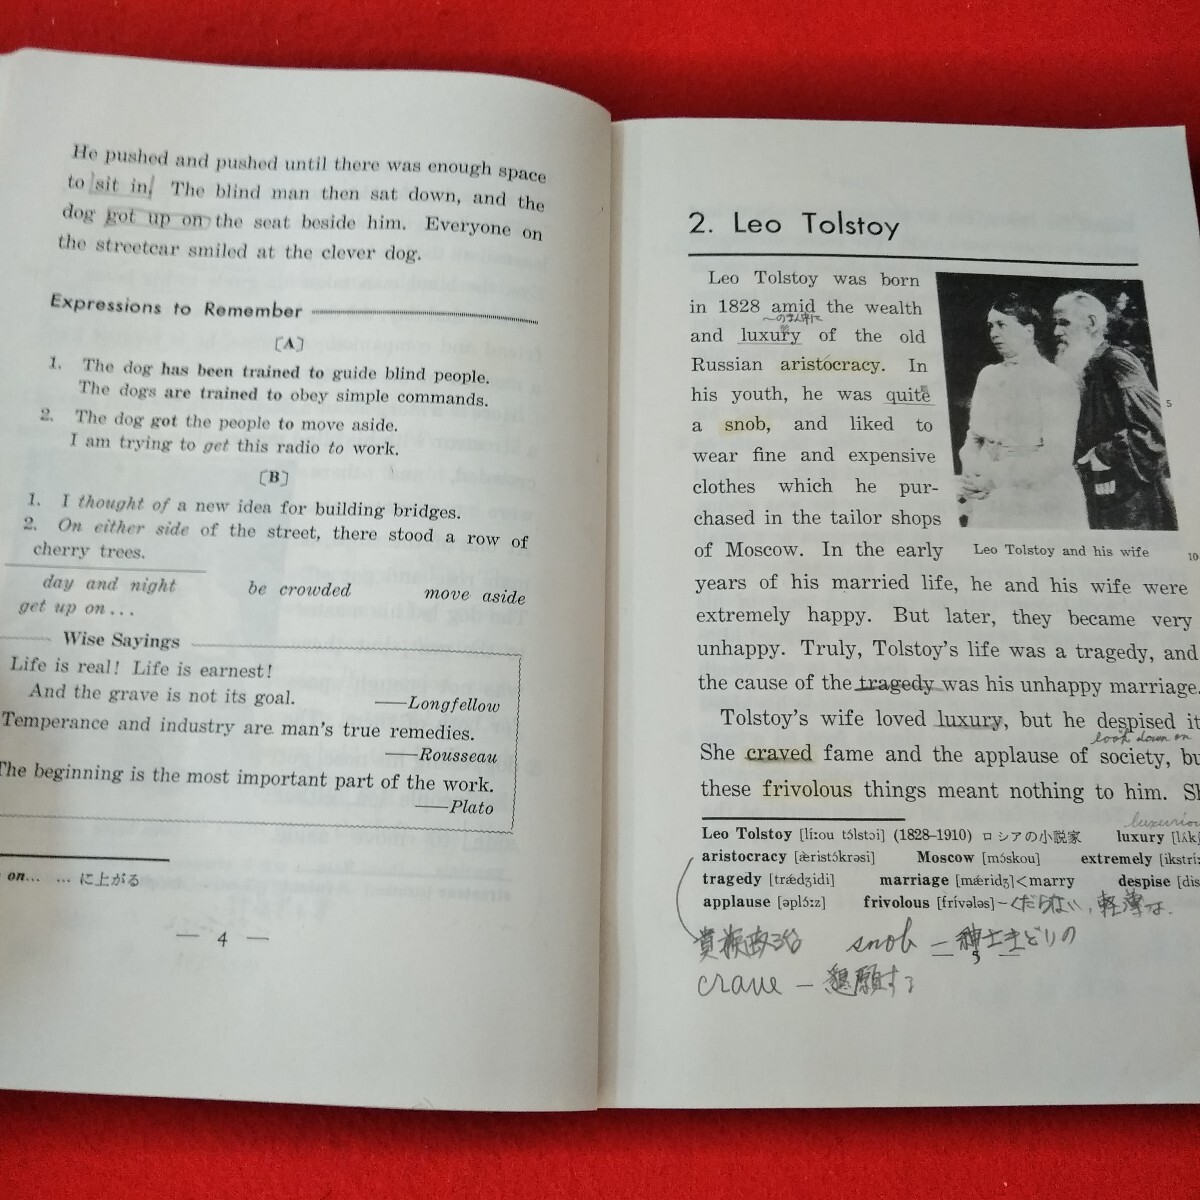 He pushed and pushed until there was enough space
to sit in. The blind man then sat down, and the
dog got up on the seat beside him. Everyone on
the streetcar smiled at the clever dog.
Expressions to Remember
[A]
1. The dog has been trained to guide blind people.
The dogs are trained to obey simple commands.
2. The dog got the people to move aside.
I am trying to get this radio to work.
[B]
1. I thought of a new idea for building bridges.
2. On either side of the street, there stood a row of
cherry trees.
day and night be crowded move aside
get up on...
Wise Sayings
Life is real! Life is earnest!
And the grave is not its goal.
——Longfellow
Temperance and industry are man's true remedies.
——Rousseau
The beginning is the most important part of the work.
——Plato
on... … に上がる
— 4 —
2. Leo Tolstoy
Leo Tolstoy was born
in 1828 amid the wealth
〜のまん中に
and luxury of the old
Russian aristocracy. In
his youth, he was quite
a snob, and liked to
wear fine and expensive
clothes which he pur-
chased in the tailor shops
of Moscow. In the early
years of his married life, he and his wife were
extremely happy. But later, they became very
unhappy. Truly, Tolstoy's life was a tragedy, and
the cause of the tragedy was his unhappy marriage.
Tolstoy's wife loved luxury, but he despised it
look down on
She craved fame and the applause of society, bu
these frivolous things meant nothing to him. Sh
5
Leo Tolstoy and his wife
10
luxuriou
Leo Tolstoy [líːou tɔ́lstɔi] (1828–1910) ロシアの小説家 luxury [lʌ́k
aristocracy [æristɔ́krəsi] Moscow [mɔ́skou] extremely [ikstríː
tragedy [trǽdʒidi] marriage [mǽridʒ]<marry despise [dis
applause [əplɔ́ːz] frivolous [frívələs] – くだらない, 軽薄な.
貴族政治 snob — 紳士きどりの
5
crave — 懇願する